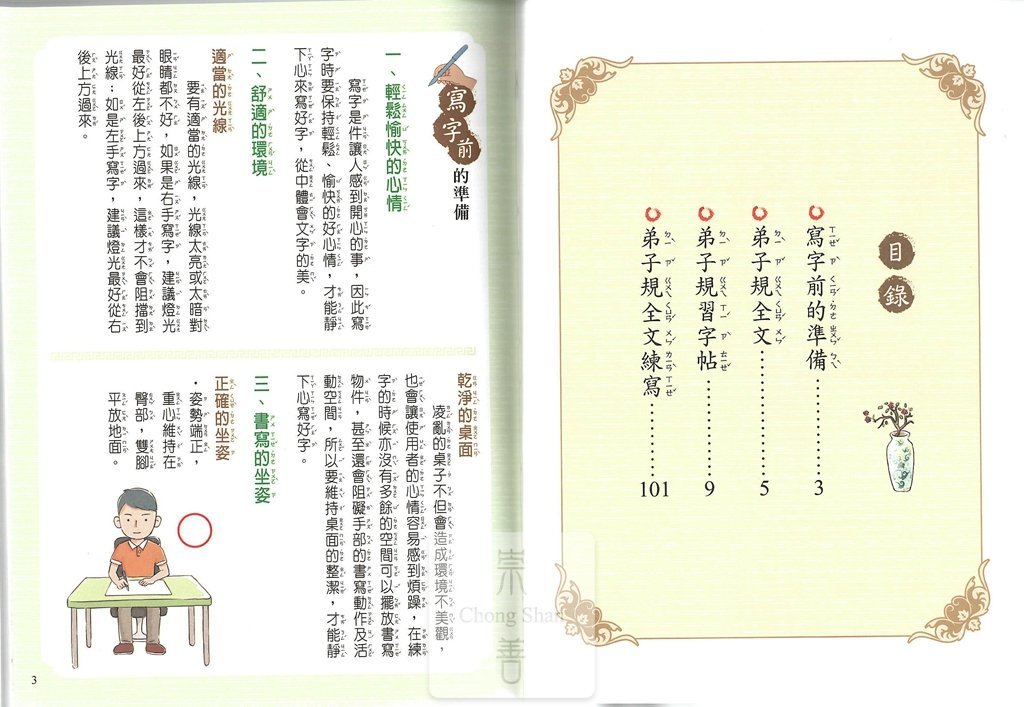 目錄
寫字前的準備……………3
弟子規全文……………5
弟子規習字帖……………9
弟子規全文練寫……………101
寫字前的準備
一、輕鬆愉快的心情
寫字是件讓人感到開心的事，因此寫
字時要保持輕鬆、愉快的好心情，才能靜
下心來寫好字，從中體會文字的美。
二、舒適的環境
適當的光線
要有適當的光線，光線太亮或太暗對
眼睛都不好，如果是右手寫字，建議燈光
最好從左後上方過來，這樣才不會阻擋到
光線；如是左手寫字，建議燈光最好從右
後上方過來。
乾淨的桌面
凌亂的桌子不但會造成環境不美觀，
也會讓使用者的心情容易感到煩躁，在練
字的時候亦沒有多餘的空間可以擺放書寫
物件，甚至還會阻礙手部的書寫動作及活
動空間，所以要維持桌面的整潔，才能靜
下心寫好字。
三、書寫的坐姿
正確的坐姿
．姿勢端正，
重心維持在
臀部，雙腳
平放地面。
3
崇
Chong Shan
善